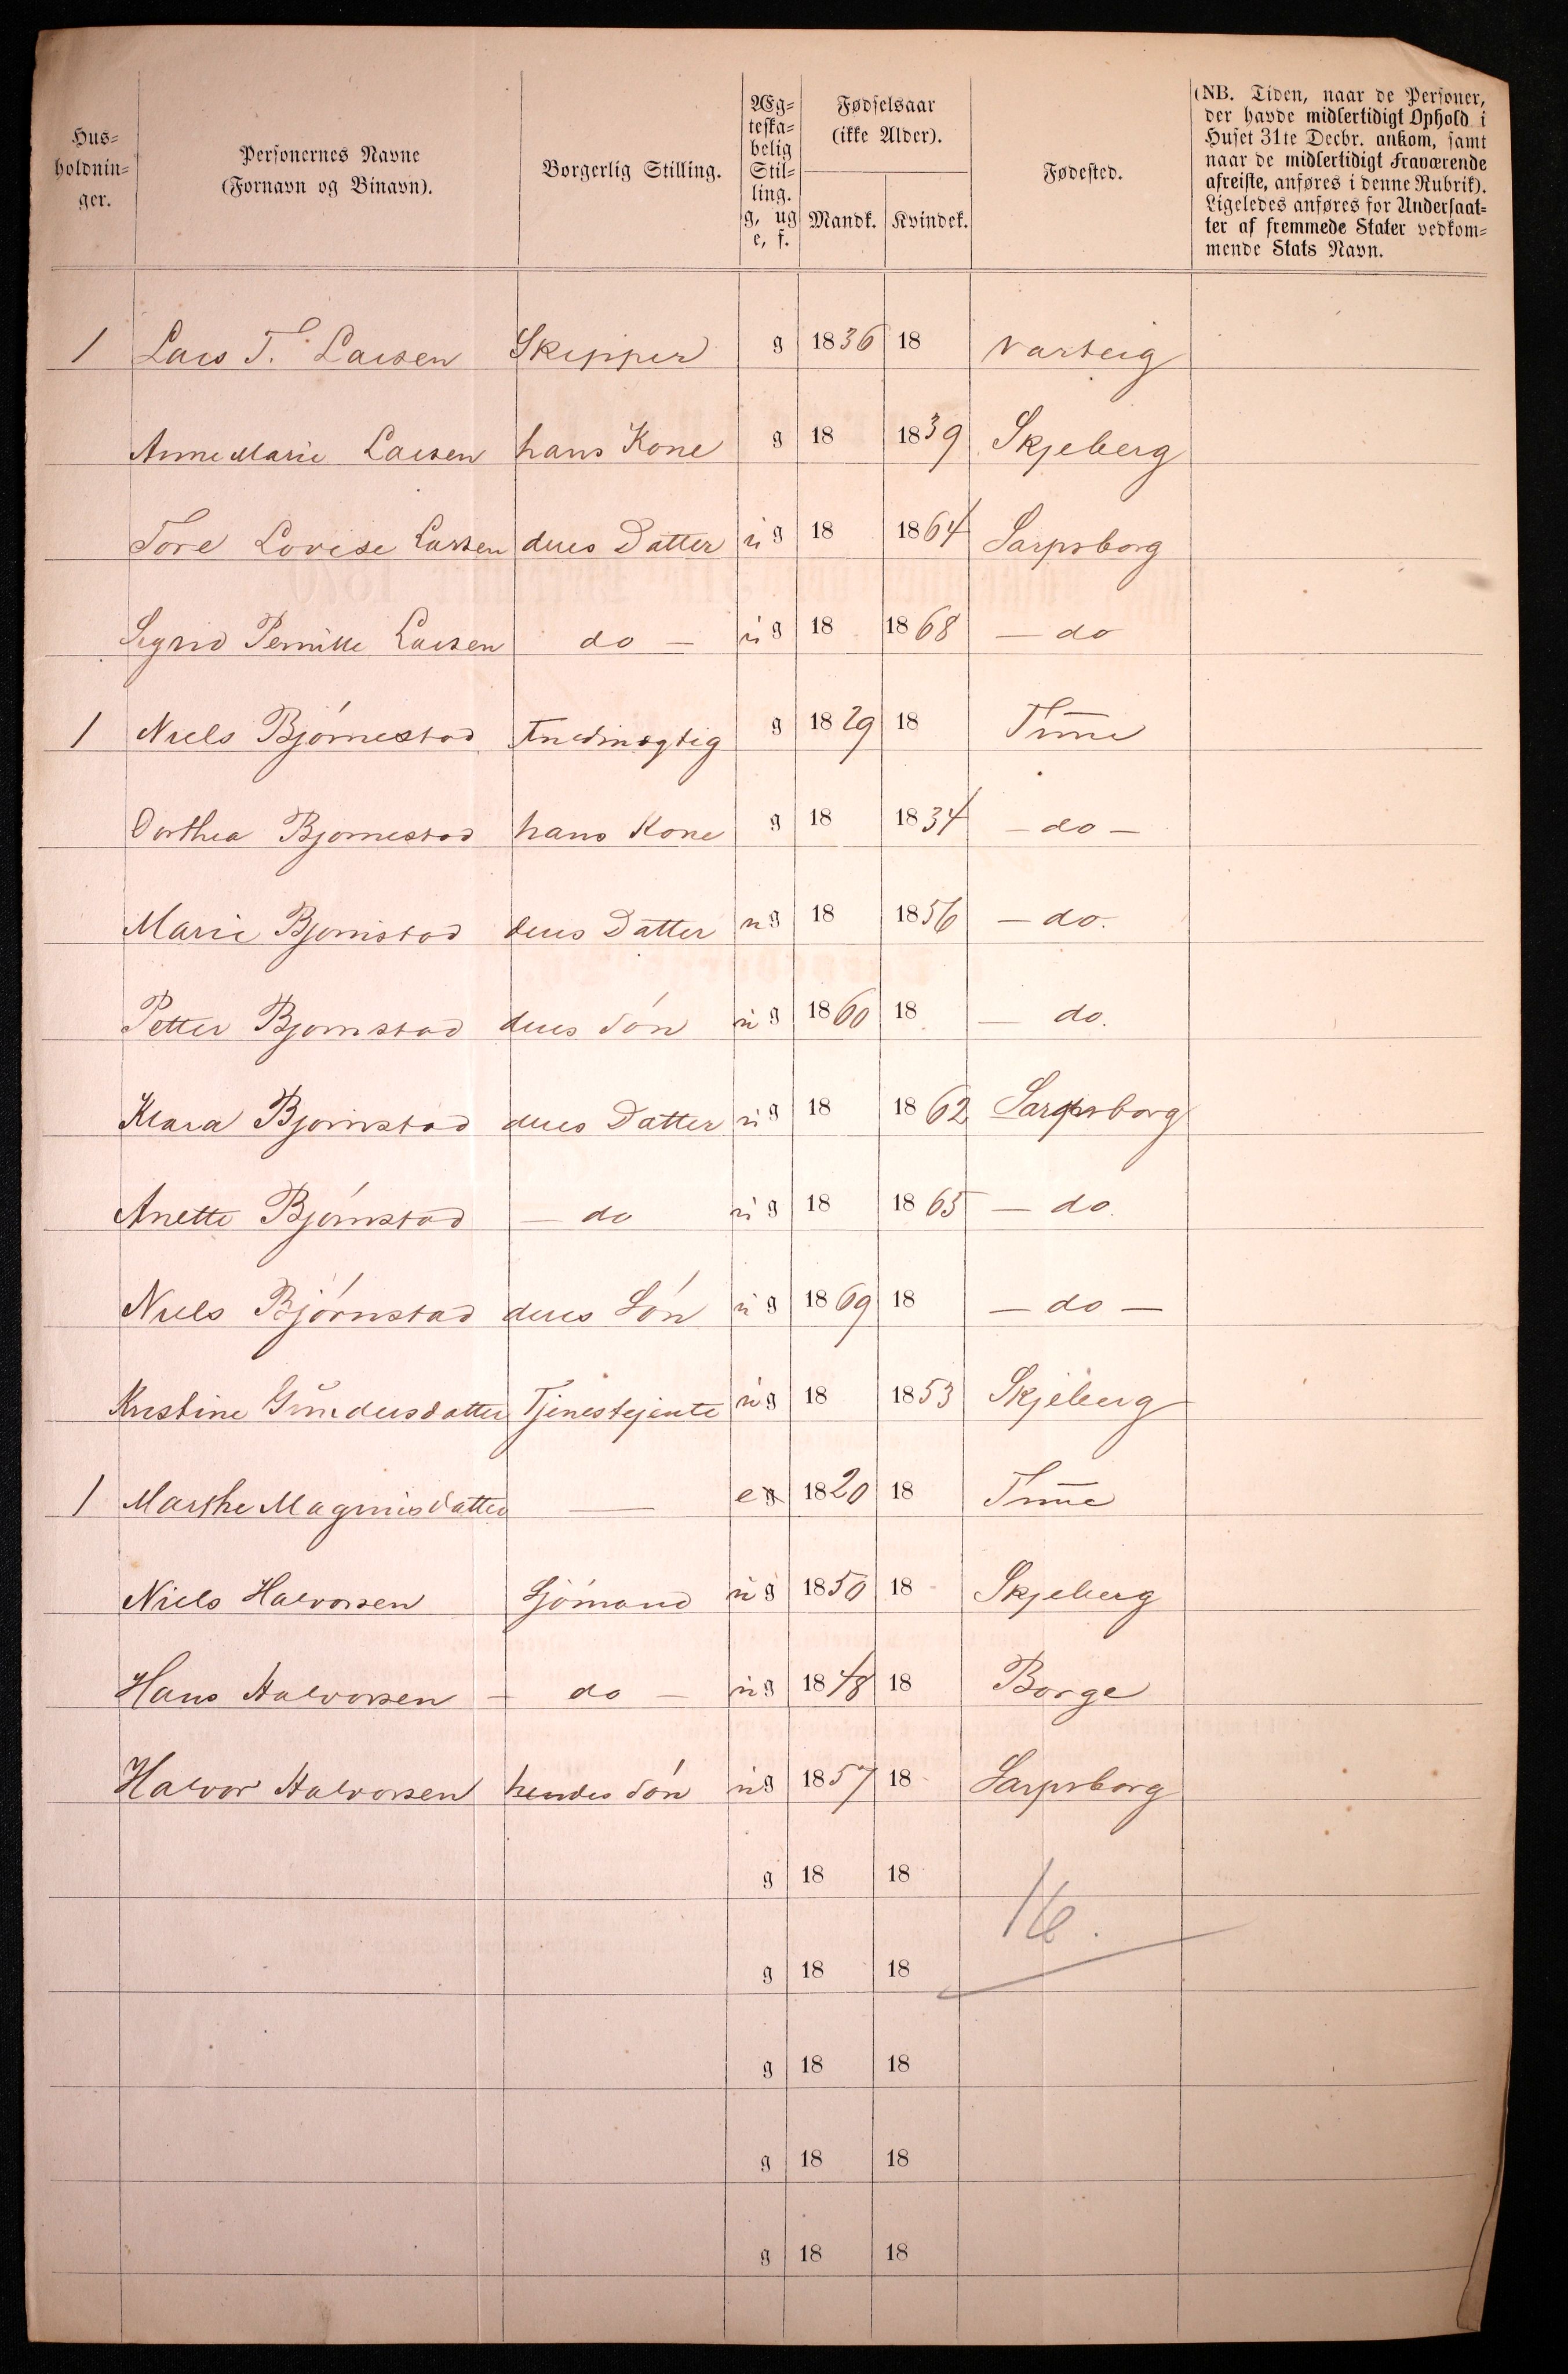 Hus-
holdnin-
ger.
Personernes Navne
(Fornavn og Binavn).
Borgerlig Stilling.
Æg-
teska-
belig
Stil-
ling.
g, ug
e, f.
Fødselsaar
(ikke Alder).
Mandk. Kvindek.
Fødested.
(NB. Tiden, naar de Personer,
der havde midlertidigt Ophold i
Huset 31te Decbr. ankom, samt
naar de midlertidigt Fraværende
afreiste, anføres i denne Rubrik).
Ligeledes anføres for Undersaat-
ter af fremmede Stater vedkom-
mende Stats Navn.
1 Lars T. Larsen Skipper g 1836 18 Varteig
Anne Marie Larsen hans Kone g 18 1839 Skjeberg
Lovise Larsen deres Datter ug 18 1864 Sarpsborg
Sigrid Pernille Larsen do — ug 18 1868 — do
1 Niels Bjørnestad g 1829 18 Tune
Dorthea Bjornestad hans Kone g 18 1834 — do —
Marie Bjornistad deres Datter ug 18 1856 — do.
Petter Bjornstad deres Søn ug 1860 18 — do.
Klara Bjornstad deres Datter ug 18 1862 Sarpsborg
Anette Bjørnstad — do ug 18 1865 — do.
Niels Bjørnstad deres Søn ug 1869 18 — do —
Kristine Gundersdatter Tjenestejente ug 18 1853 Skjeberg
1 Marthe Magnusdatter — e g 1820 18 Tune
Niels Halvorsen Sjømand ug 1850 18 Skjeberg
Hans Halvorsen — do — ug 1848 18 Borge
Halvor Halvorsen hendes Søn ug 1857 18 Sarpsborg
g 18 18
16.
g 18 18
g 18 18
g 18 18
g 18 18